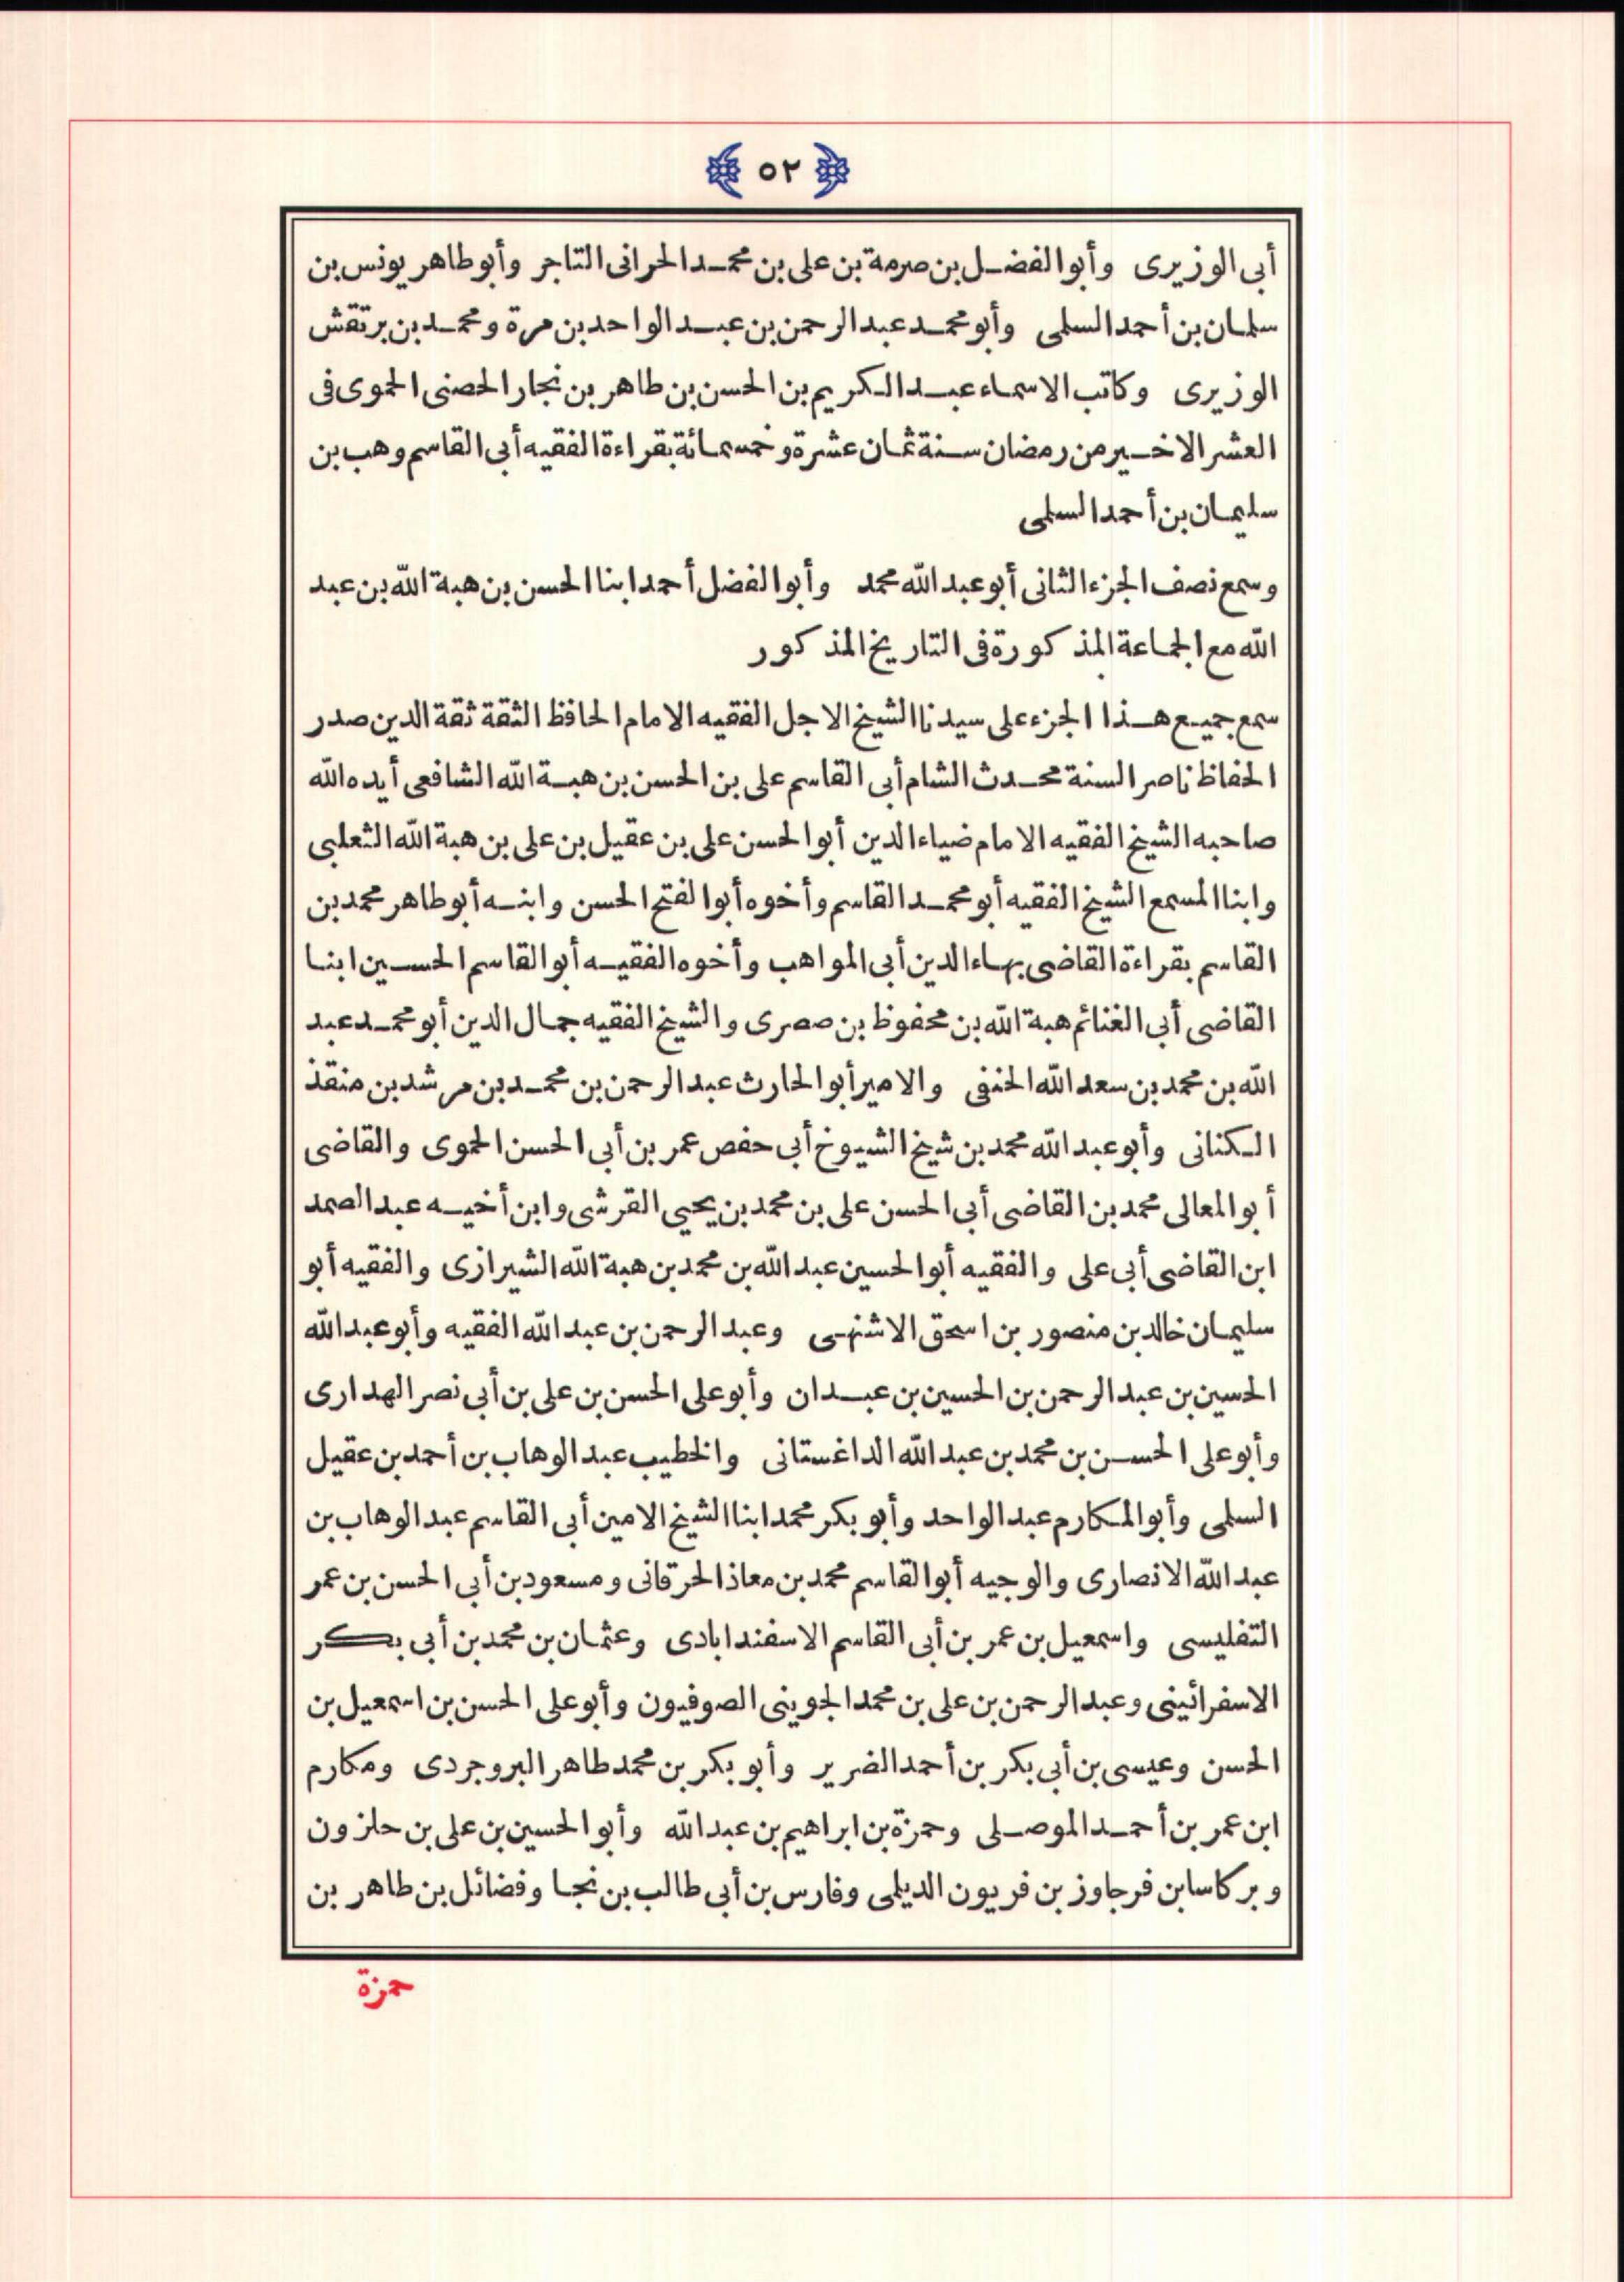 ﴿ ٥٢ ﴾
أبى الوزيرى وأبو الفضل بن صرمة بن على بن محمد الحرانى التاجر وأبو طاهر يونس بن
سلمان بن أحمد السلمى وأبو محمد عبد الرحمن بن عبد الواحد بن مرة ومحمد بن برتقش
الوزيرى وكاتب الاسماء عبد الكريم بن الحسن بن طاهر بن نجار الحصنى الحموى فى
العشر الاخير من رمضان سنة ثمان عشرة وخمسمائة بقراءة الفقيه أبى القاسم وهب بن
سليمان بن أحمد السلمى
وسمع نصف الجزء الثانى أبو عبد الله محمد وأبو الفضل أحمد ابنا الحسن بن هبة الله بن عبد
الله مع الجماعة المذكورة فى التاريخ المذكور
سمع جميع هذا الجزء على سيدنا الشيخ الاجل الفقيه الامام الحافظ الثقة ثقة الدين صدر
الحفاظ ناصر السنة محدث الشام أبى القاسم على بن الحسن بن هبة الله الشافعى أيده الله
صاحبه الشيخ الفقيه الامام ضياء الدين أبو الحسن على بن عقيل بن على بن هبة الله الثعلبى
وابنا المسمع الشيخ الفقيه أبو محمد القاسم وأخوه أبو الفتح الحسن وابنه أبو طاهر محمد بن
القاسم بقراءة القاضى بهاء الدين أبى المواهب وأخوه الفقيه أبو القاسم الحسين ابنا
القاضى أبى الغنائم هبة الله بن محفوظ بن صصرى والشيخ الفقيه جمال الدين أبو محمد عبد
الله بن محمد بن سعد الله الحنفى والامير أبو الحارث عبد الرحمن بن محمد بن مرشد بن منقذ
الكنانى وأبو عبد الله محمد بن شيخ الشيوخ أبى حفص عمر بن أبى الحسن الحموى والقاضى
أبو المعالى محمد بن القاضى أبى الحسن على بن محمد بن يحيى القرشى وابن أخيه عبد الصمد
ابن القاضى أبى على والفقيه أبو الحسين عبد الله بن محمد بن هبة الله الشيرازى والفقيه أبو
سليمان خالد بن منصور بن اسحق الاشنهى وعبد الرحمن بن عبد الله الفقيه وأبو عبد الله
الحسين بن عبد الرحمن بن الحسين بن عبدان وأبو على الحسن بن على بن أبى نصر الهدارى
وأبو على الحسن بن محمد بن عبد الله الداغستانى والخطيب عبد الوهاب بن أحمد بن عقيل
السلمى وأبو المكارم عبد الواحد وأبو بكر محمد ابنا الشيخ الامين أبى القاسم عبد الوهاب بن
عبد الله الانصارى والوجيه أبو القاسم محمد بن معاذ الحرقانى ومسعود بن أبى الحسن بن عمر
التفليسى واسمعيل بن عمر بن أبى القاسم الاسفندابادى وعثمان بن محمد بن أبى بكر
الاسفرائينى وعبد الرحمن بن على بن محمد الجوينى الصوفيون وأبو على الحسن بن اسمعيل بن
الحسن وعيسى بن أبى بكر بن أحمد الضرير وأبو بكر بن محمد طاهر البروجردى ومكارم
ابن عمر بن أحمد الموصلى وحمزة بن ابراهيم بن عبد الله وأبو الحسين بن على بن حلزون
وبركاسا بن فرجاوز بن فريون الديلمى وفارس بن أبى طالب بن نجا وفضائل بن طاهر بن
حمزة